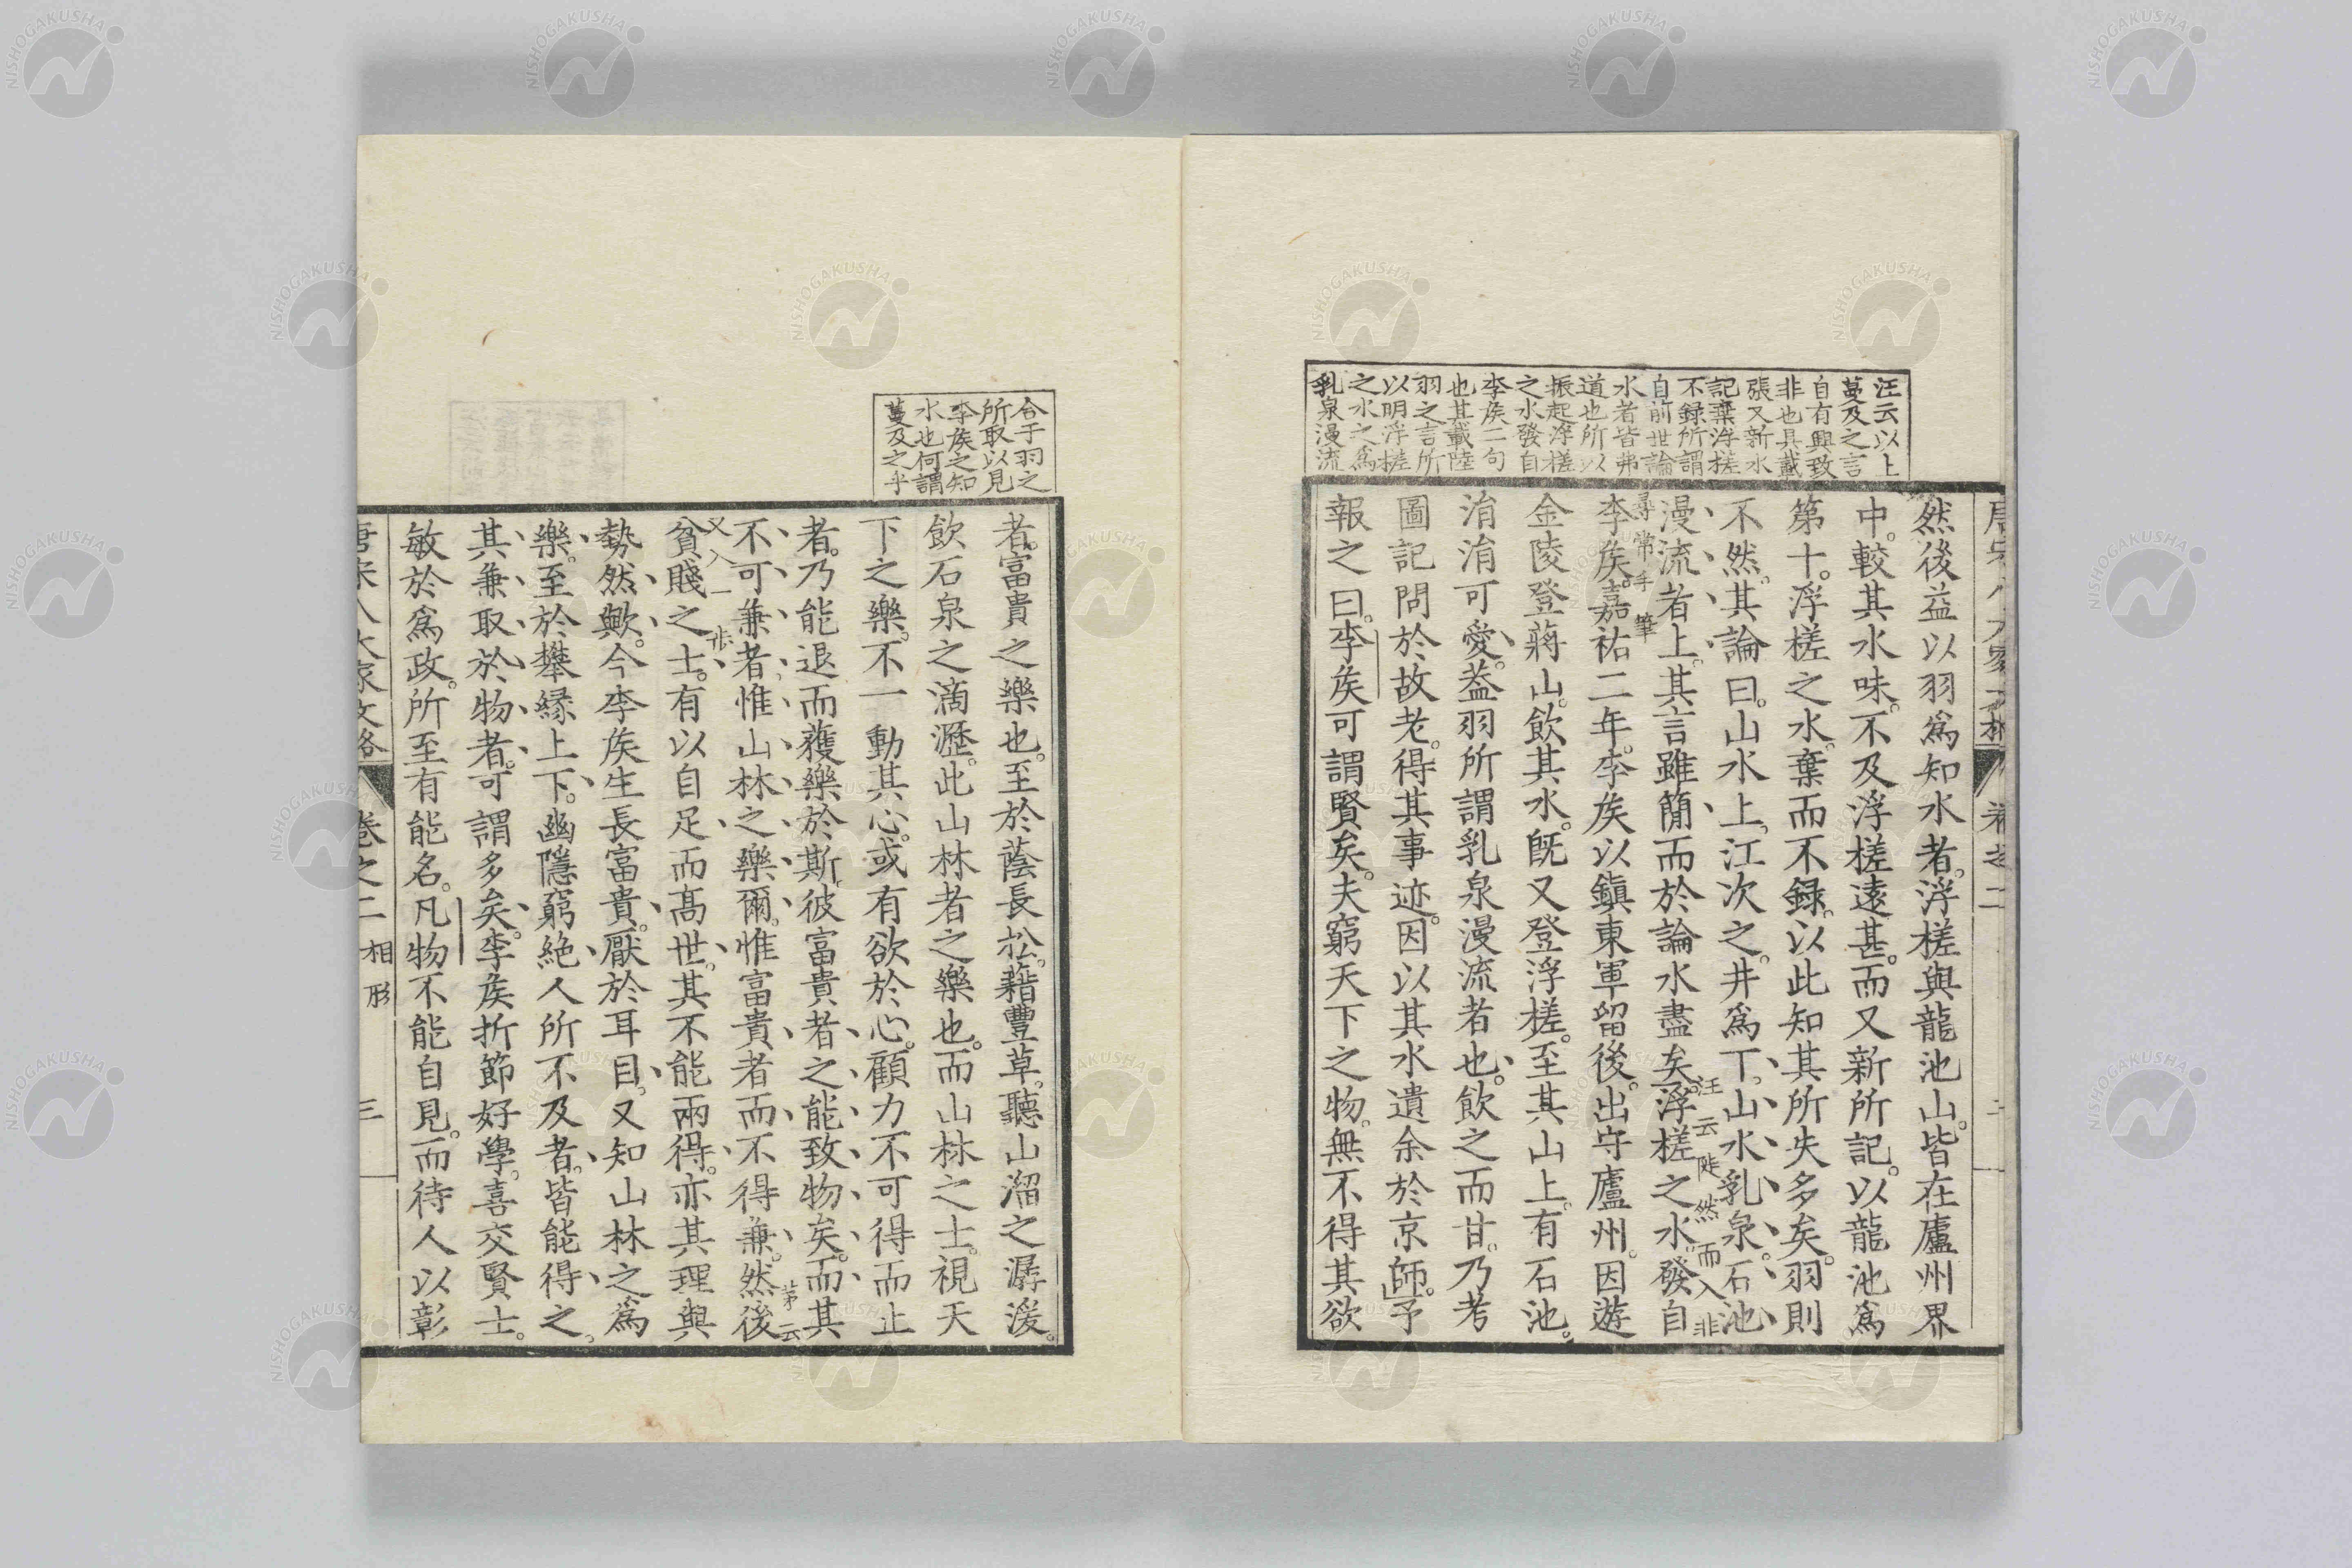 汪云以上
蔓及之言
自有興致
非也具載
張又新水
記棄浮槎
不錄所謂
自前世論
水者皆弗
道也所以
振起浮槎
之水發自
李矦二句
也其載陸
羽之言所
以明浮槎
之水之爲
乳泉漫流
然後益以羽爲知水者。浮槎與龍池山。皆在廬州界
中。較其水味。不及浮槎遠甚。而又新所記。以龍池爲
第十。浮槎之水。棄而不錄。以此知其所失多矣。羽則
不然。其論曰。山水上。江次之。井爲下。山水乳泉。石池
漫流者上。其言雖簡。而於論水盡矣。浮槎之水。發自
汪云陡然而入非
尋常手筆
李矦。嘉祐二年。李矦以鎭東軍留後。出守廬州。因遊
金陵登蔣山。飲其水。旣又登浮槎。至其山上。有石池。
涓涓可愛。葢羽所謂乳泉漫流者也。飲之而甘。乃考
圖記問於故老。得其事迹。因以其水遺余於京師。予
報之曰。李矦可謂賢矣。夫窮天下之物。無不得其欲
卷之二
合于羽之
所取以見
李矦之知
水也何謂
蔓及之乎
者。富貴之樂也。至於蔭長松。藉豐草。聽山溜之潺湲。
飲石泉之滴瀝。此山林者之樂也。而山林之士。視天
下之樂。不一動其心。或有欲於心。顧力不可得而止
者。乃能退而獲樂於斯。彼富貴者之能致物矣。而其
茅云
又入一步
不可兼者。惟山林之樂爾。惟富貴者而不得兼。然後
貧賤之士。有以自足而高世。其不能兩得。亦其理與
勢然歟。今李矦生長富貴。厭於耳目。又知山林之爲
樂。至於攀緣上下。幽隱窮絶。人所不及者。皆能得之。
其兼取於物者。可謂多矣。李矦折節好學。喜交賢士。
敏於爲政。所至有能名。凡物不能自見。而待人以彰
唐宋八大家文格 卷之二 相形 三